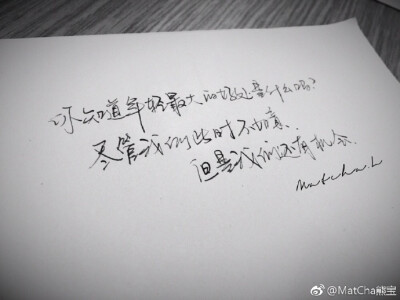 你知道年轻最大的好处是什么吗?
尽管我们此时不如意,
但是我们还有机会.
Matcha.L
@MatCha熊宝